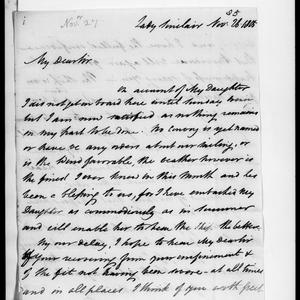 Nov. 27
35
Lady Sinclair Nov. 28, 
My Dear Sir
On account of my Daughter
I did not get on board here until Sunday
but I am now satisfied as nothing remains
on my part to be done. No Convoy is yet named
or have we any orders about our sailing, or
is the Wind favorable, the weather however is
the finest I ever knew in this Month and has
been a blessing to us, for I have embarked my
Daughter as commodiously as in summer
and will enable her to bear the Ship the better.
By our delay, I hope to hear My Dear Sir
of your recovering from your confinement &
of the fit not having been severe - at all times
and in all places I think of you with great